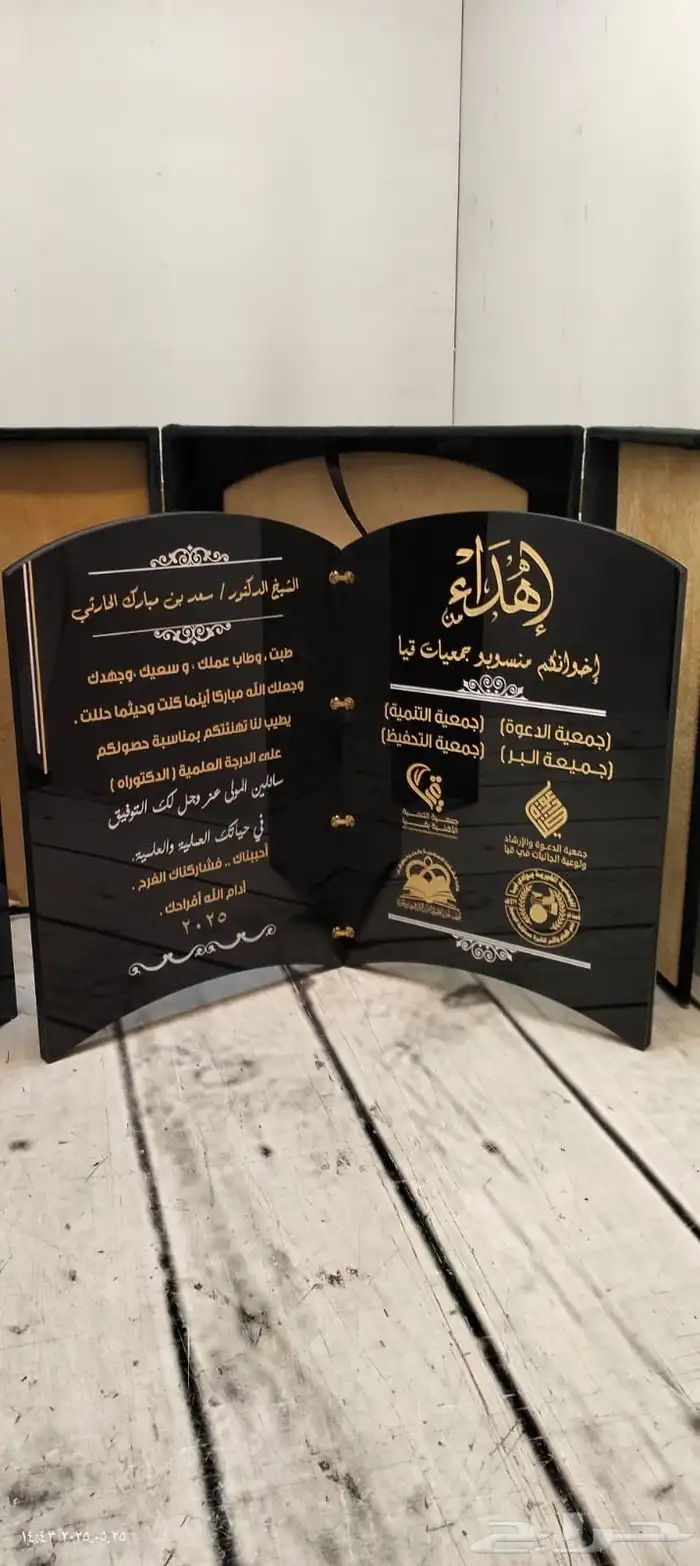 إهداء
من
إخوانكم منسوبو جمعيات قيا
(جمعية الدعوة) (جمعية التنمية)
(جميعة البر) (جمعية التحفيظ)
جمعية التنمية
الأهلية بقيا
جمعية الدعوة والإرشاد
وتوعية الجاليات في قيا
الشيخ الدكتور / سعد بن مبارك الحارثي
طبت ، وطاب عملك ، و سعيك ،وجهدك
وجعلك الله مباركا أينما كنت وحيثما حللت .
يطيب لنا تهنئتكم بمناسبة حصولكم
على الدرجة العلمية ( الدكتوراه )
سائلين المولى عز وجل لك التوفيق
في حياتك العملية والعلمية.
أحببناك .. فشاركناك الفرح .
أدام الله أفراحك .
٢٠٢٥
١٤:٤٣ ٢٠٢٥,٠٥,٢٥
حراج